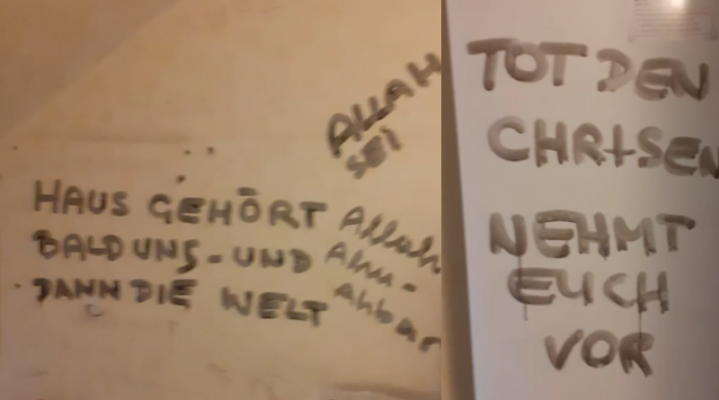 ALLAH
SEI
HAUS GEHÖRT Allah
BALD UNS-UND Ahu-
DANN DIE WELT ahbar
TOT DEN
CHRISEN
NEHMT
EUCH
VOR